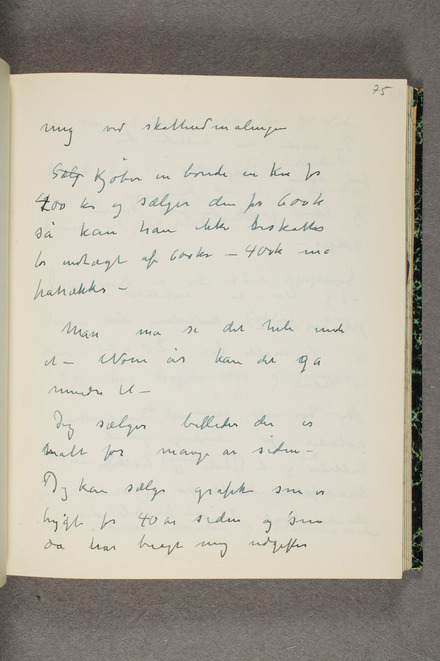 75
mig ved skatteudmalingen
Kjøber en bonde en ku for
400 kr og sælger den for 600 k
så kan han ikke beskattes
for indtægt af 600 kr – 400 k må
fratrækkes –
Man må se det hele under
et – Nom år kan det gå
mindre
Jeg sælger billeder der er
malt for mange år siden –
Jeg kan sælge grafik som er
trygt for 40 år siden og som
da har bragt mig udgifter